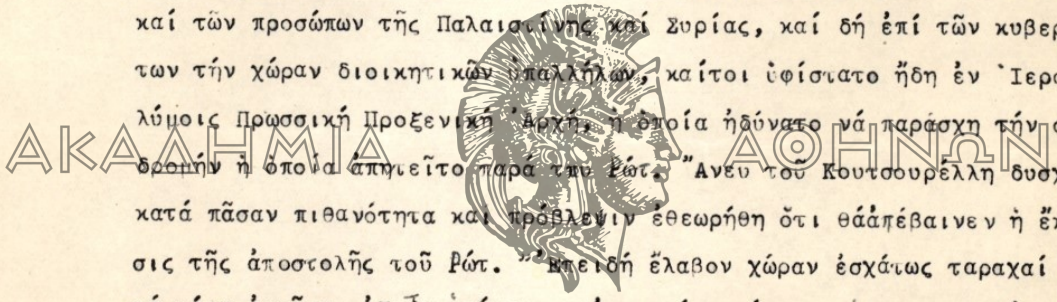 καί τῶν προσώπων τῆς Παλαιστίνης καί Συρίας, καί δή ἐπί τῶν κυβερ
των τήν χώραν διοικητικῶν ὑπαλλήλων, καίτοι ὑφίστατο ἤδη ἐν Ἱερο
λύμοις Πρωσσική Προξενική Ἀρχή, ἡ ὁποία ἠδύνατο νά παράσχη τήν
ΑΚΑΔΗΜΙΑ ΑΘΗΝΩΝ
δρομήν ἡ ὁποία ἀπῃτεῖτο παρά τοῦ Ρώτ. Ἄνευ τοῦ Κουτσουρέλλη δυσχ
κατά πᾶσαν πιθανότητα καί πρόβλεψιν ἐθεωρήθη ὅτι θάἀπέβαινεν ἡ ἔκ
σις τῆς ἀποστολῆς τοῦ Ρώτ. "Ἐπειδή ἔλαβον χώραν ἐσχάτως ταραχαί